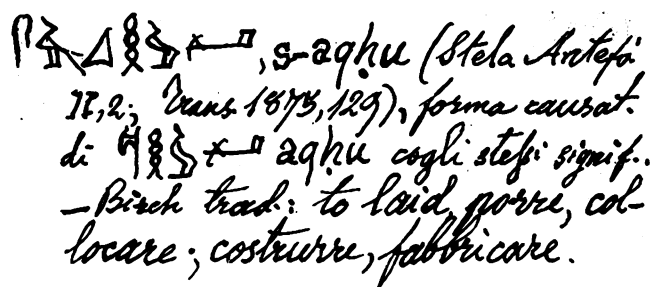 , s-aqḥu (Stela Antefá
II,2; Trans. 1873,129), forma causat.
di aqḥu cogli stessi signif..
— Birch trad.: to laid, porre, col-
locare; costrurre, fabbricare.